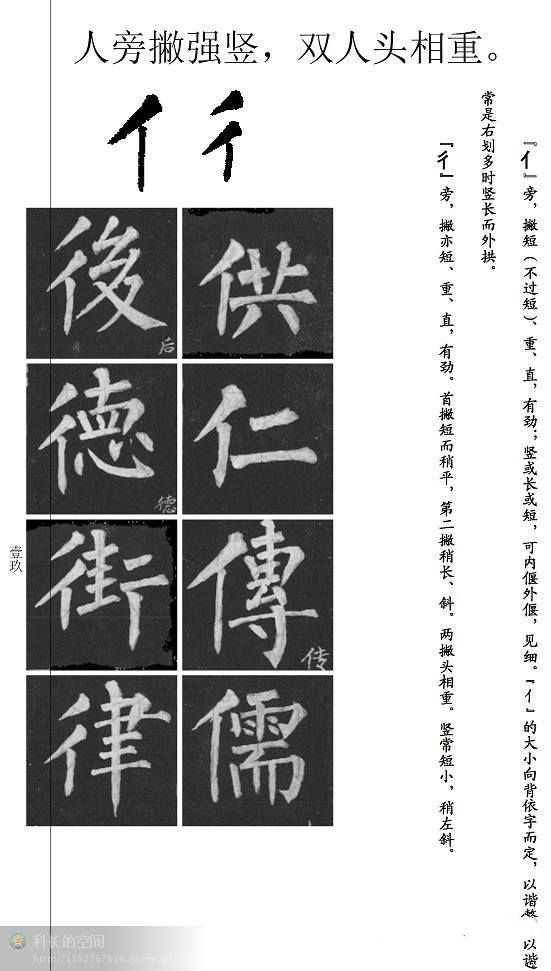 人旁撇强竖，双人头相重。
亻彳
『亻』旁，撇短（不过短）、重、直，有劲；竖或长或短，可内偃外偃，见细。『亻』的大小向背依字而定，以谐 以谐
常是右划多时竖长而外拱。
『彳』旁，撇亦短、重、直，有劲。首撇短而稍平，第二撇稍长、斜。两撇头相重。竖常短小，稍左斜。
供
仁
傳 传
儒
後 后
德 德
街
律
壹玖
科长的空间